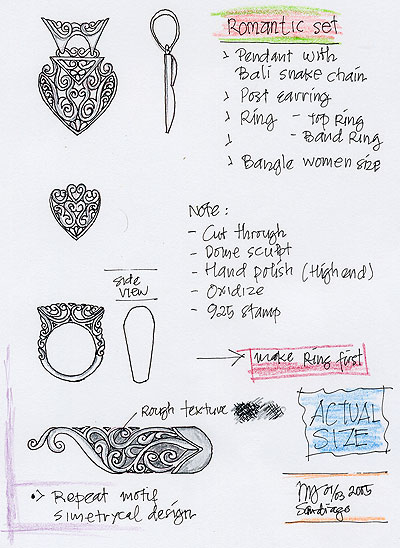 Romantic set
> Pendant with
Bali snake chain
> Post earring
> Ring - Top Ring
> - Band Ring
> Bangle women size
Note :
- Cut through
- Dome sculpt
- Hand polish (High end)
- Oxidize
- 925 stamp
side
view
make Ring first
rough texture
ACTUAL
SIZE
•> Repeat motif
simetrycal design
01/03 2005